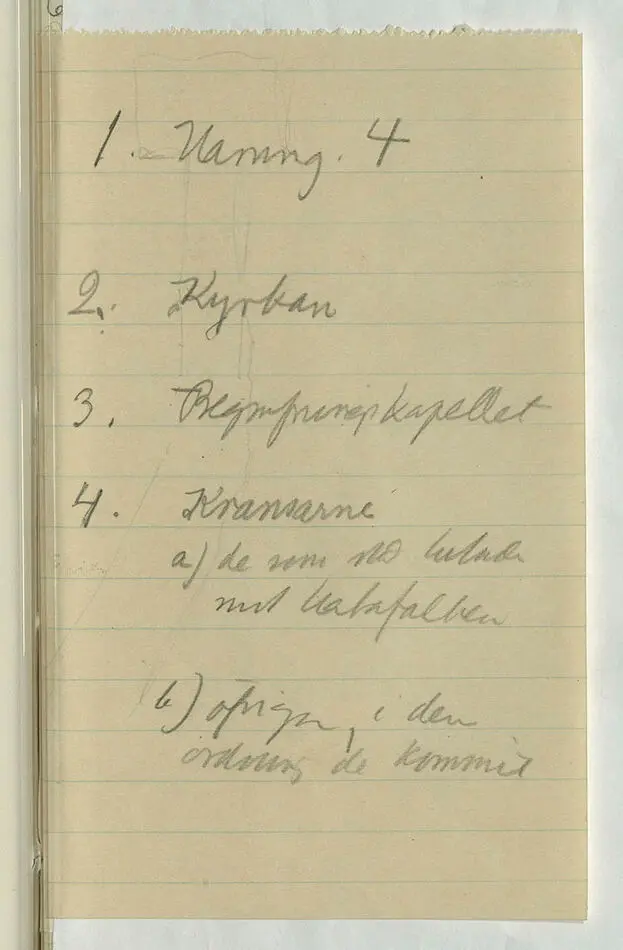 1. Harung. 4
2. Kyrkan
3. Begrafningskapellet
4. Kransarne
a) de som stå lutade
mot katafalken
b) öfriga, i den
ordning de kommit